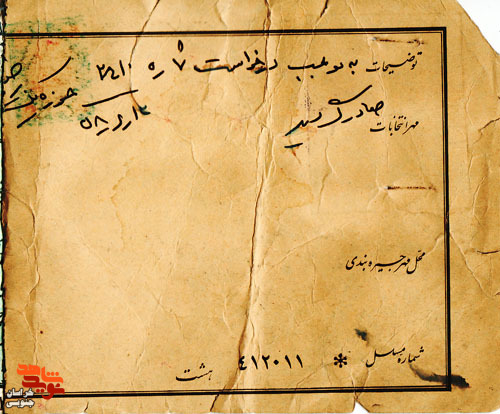 توضیحات به موجب درخواست ۷ ره ۲۴۱۰
حوزه یک
مهر انتخابات صادر گردید
۵۸
محل مهر جیره بندی
شماره مسلسل * ۴۱۲۰۱۱ هشت
نوید شاهد
خراسان جنوبی